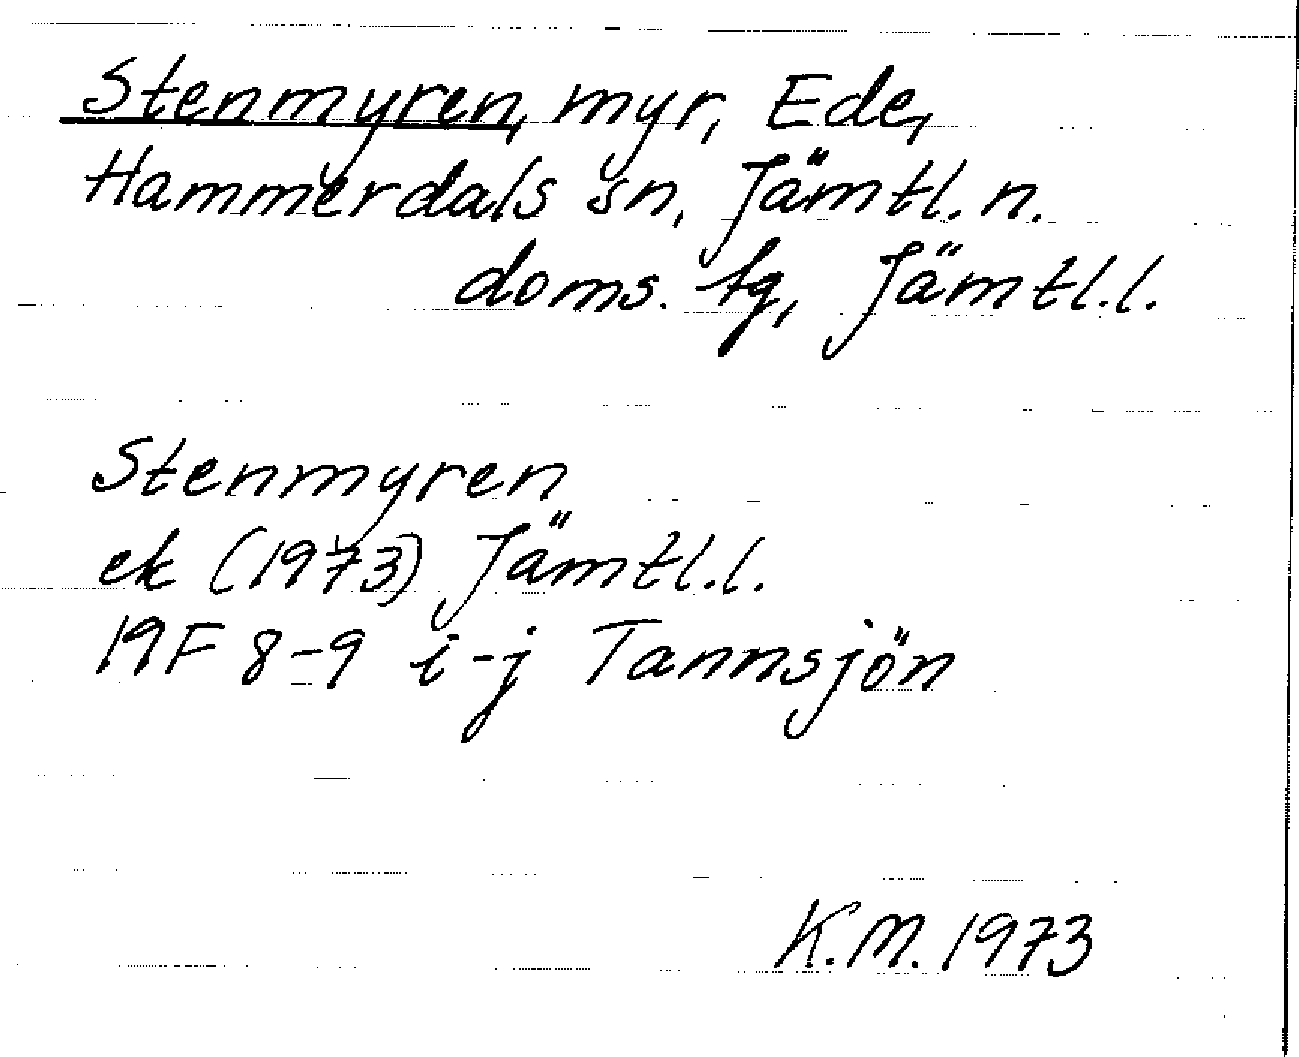 Stenmyren, myr, Ede,
Hammerdals sn, Jämtl. n.
doms. tg, Jämtl. l.
Stenmyren
ek (1973) Jämtl. l.
19F 8-9 i-j Tannsjön
K.M. 1973